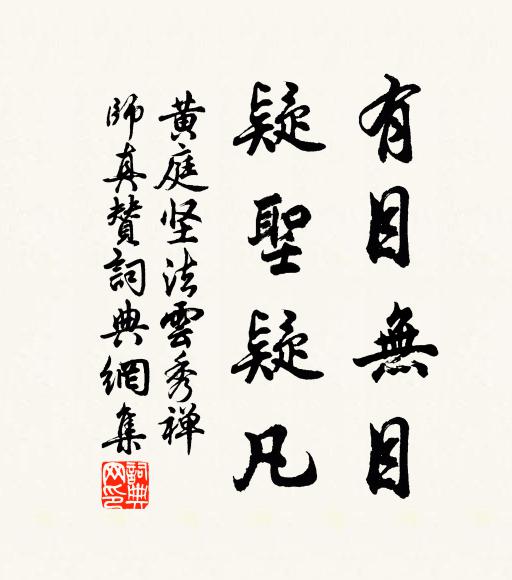 有目無目
疑聖疑凡
黄庭坚法雲秀禅
師真赞詞典網集
詞典网印